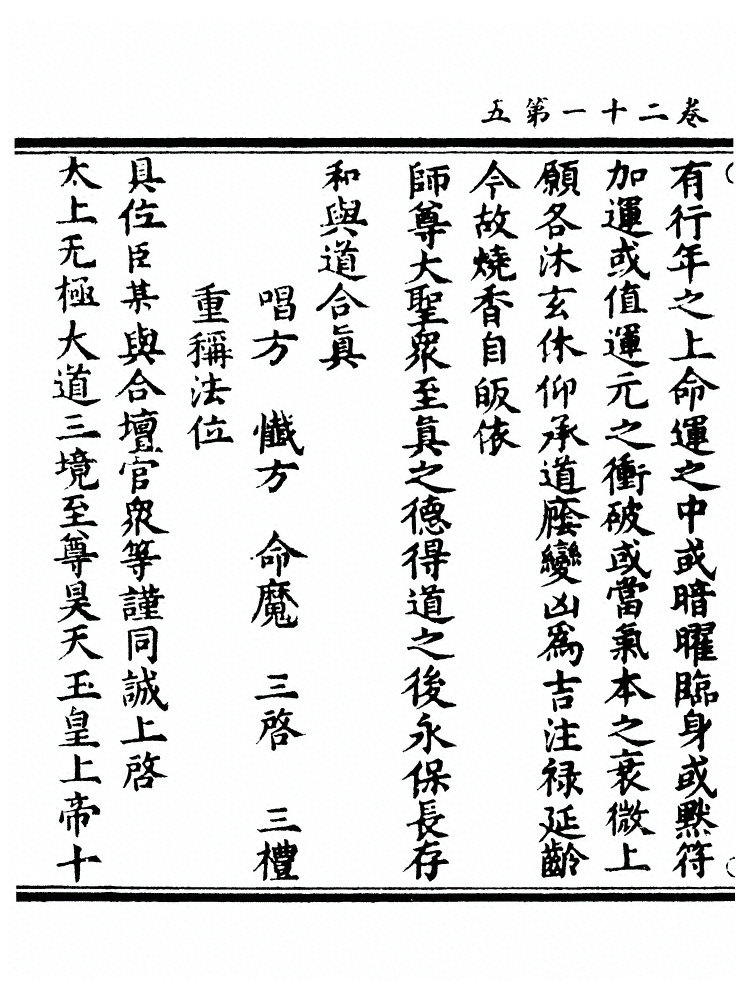 卷二十一第五
有行年之上命運之中或暗曜臨身或黙符
加運或值運元之衝破或當氣本之衰微上
願各沐玄休仰承道廕變凶爲吉注禄延齡
今故燒香自皈依
師尊大聖衆至真之德得道之後永保長存
和與道合真
唱方　懺方　命魔　三啓　三禮
重稱法位
具位臣某與合壇官衆等謹同誠上啓
太上无極大道三境至尊昊天玉皇上帝十